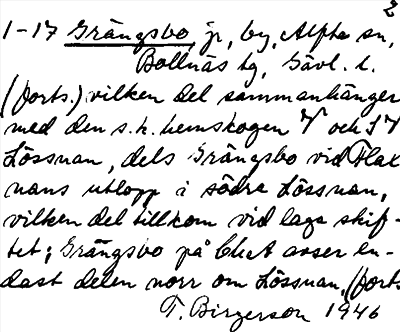 2
1-17 Grängsbo, jr, by, Alfta sn,
Bollnäs tg, Gävl. l.
(forts.) vilken del sammanhänger
med den s.k. hemskogen V och SV
Lössnan, dels Grängsbo vid Flax
nans utlopp i södra Lössnan,
vilken del tillkom vid laga skif-
tet; Grängsbo på bl.et avser en-
dast delen norr om Lössnan. (forts
T. Birgerson 1946